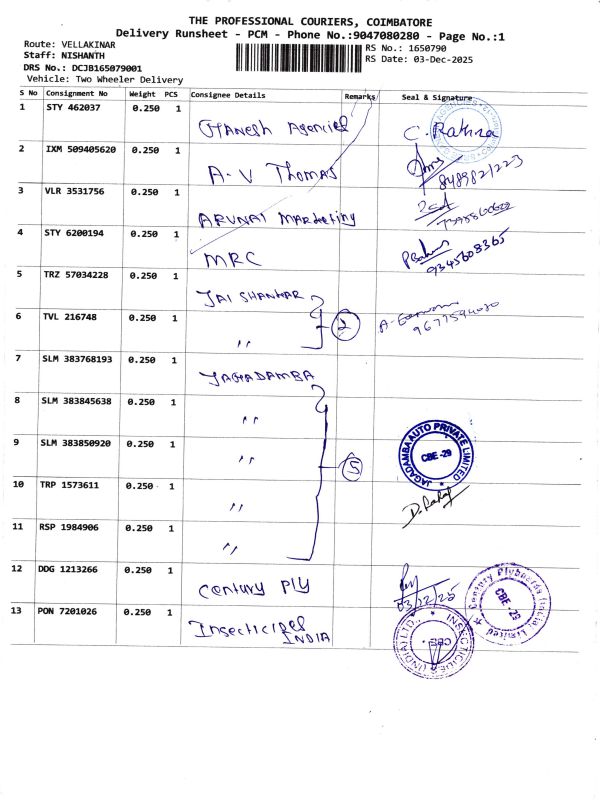 THE PROFESSIONAL COURIERS, COIMBATORE
Delivery Runsheet - PCM - Phone No.:9047080280 - Page No.:1
Route: VELLAKINAR
RS No.: 1650790
Staff: NISHANTH
RS Date: 03-Dec-2025
DRS No.: DCJB165079001
Vehicle: Two Wheeler Delivery
S No Consignment No Weight PCS Consignee Details Remarks Seal & Signature
1 STY 462037 0.250 1 GANesh Agencies C. Rathna
2 IXM 509405620 0.250 1 A-V Thomas 8489821223
3 VLR 3531756 0.250 1 ARUNAI Marketing
4 STY 6200194 0.250 1 MRC 9345608365
5 TRZ 57034228 0.250 1 JAI SHANKAR
6 TVL 216748 0.250 1 " 2
7 SLM 383768193 0.250 1 JAGADAMBA
8 SLM 383845638 0.250 1 "
9 SLM 383850920 0.250 1 " 5 JAGADAMBA AUTO PRIVATE LIMITED CBE -29
10 TRP 1573611 0.250 1 "
11 RSP 1984906 0.250 1 "
12 DDG 1213266 0.250 1 Century PLY 03/12/25 Century Plyboards (India) Limited CBE -29
13 PON 7201026 0.250 1 Insecticides INDIA INSECTICIDES (INDIA) LTD. CBE